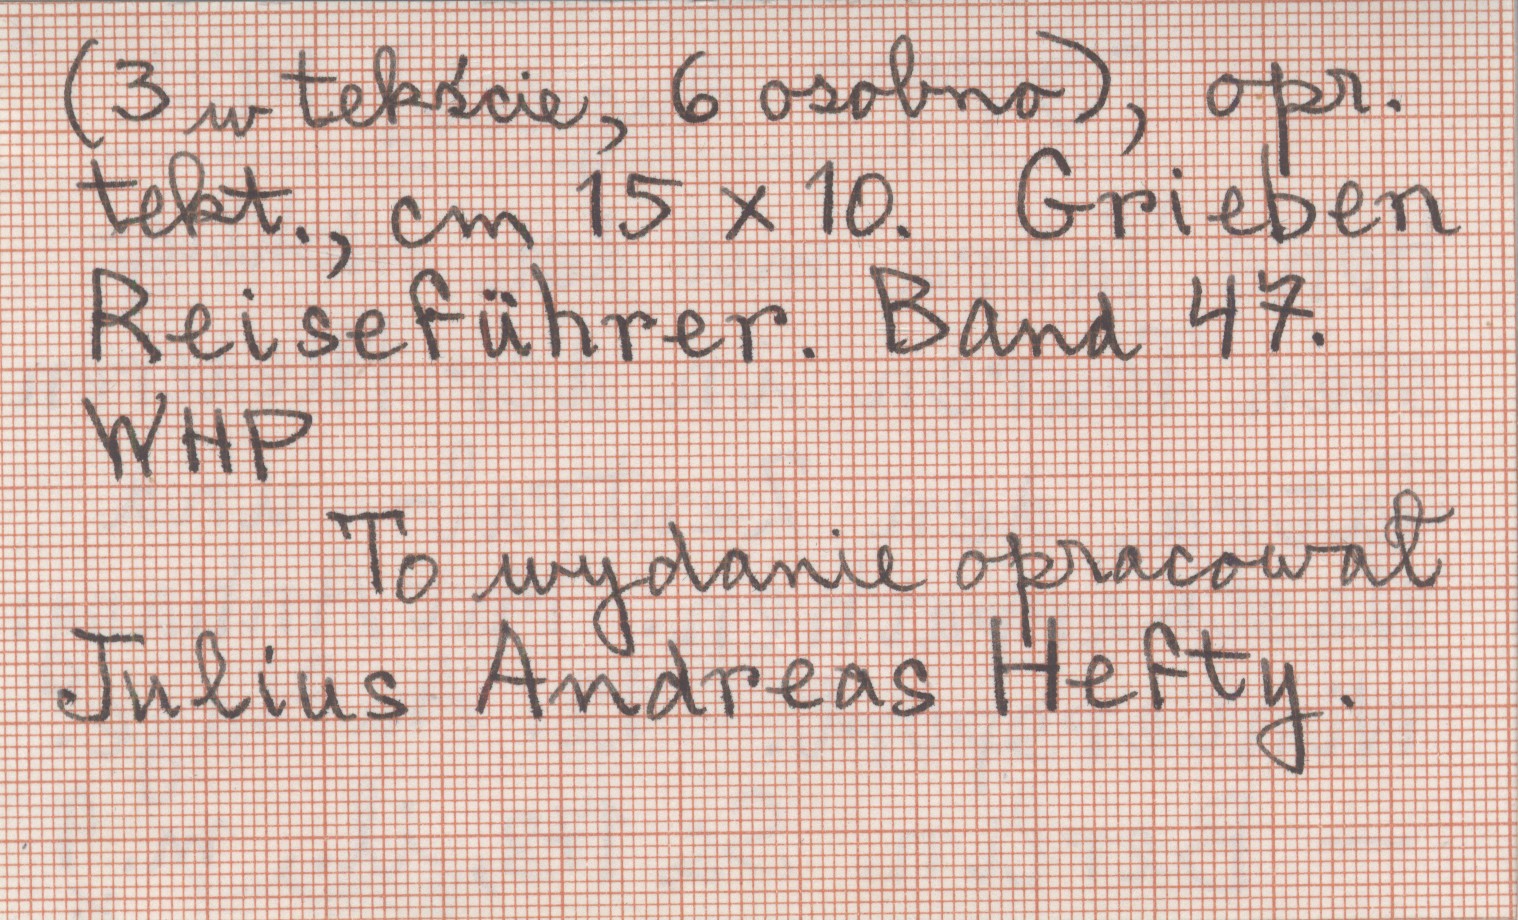 (3 w tekście, 6 osobno), opr.
tekt., cm 15 x 10. Grieben
Reiseführer. Band 47.
WHP
To wydanie opracował
Julius Andreas Hefty.